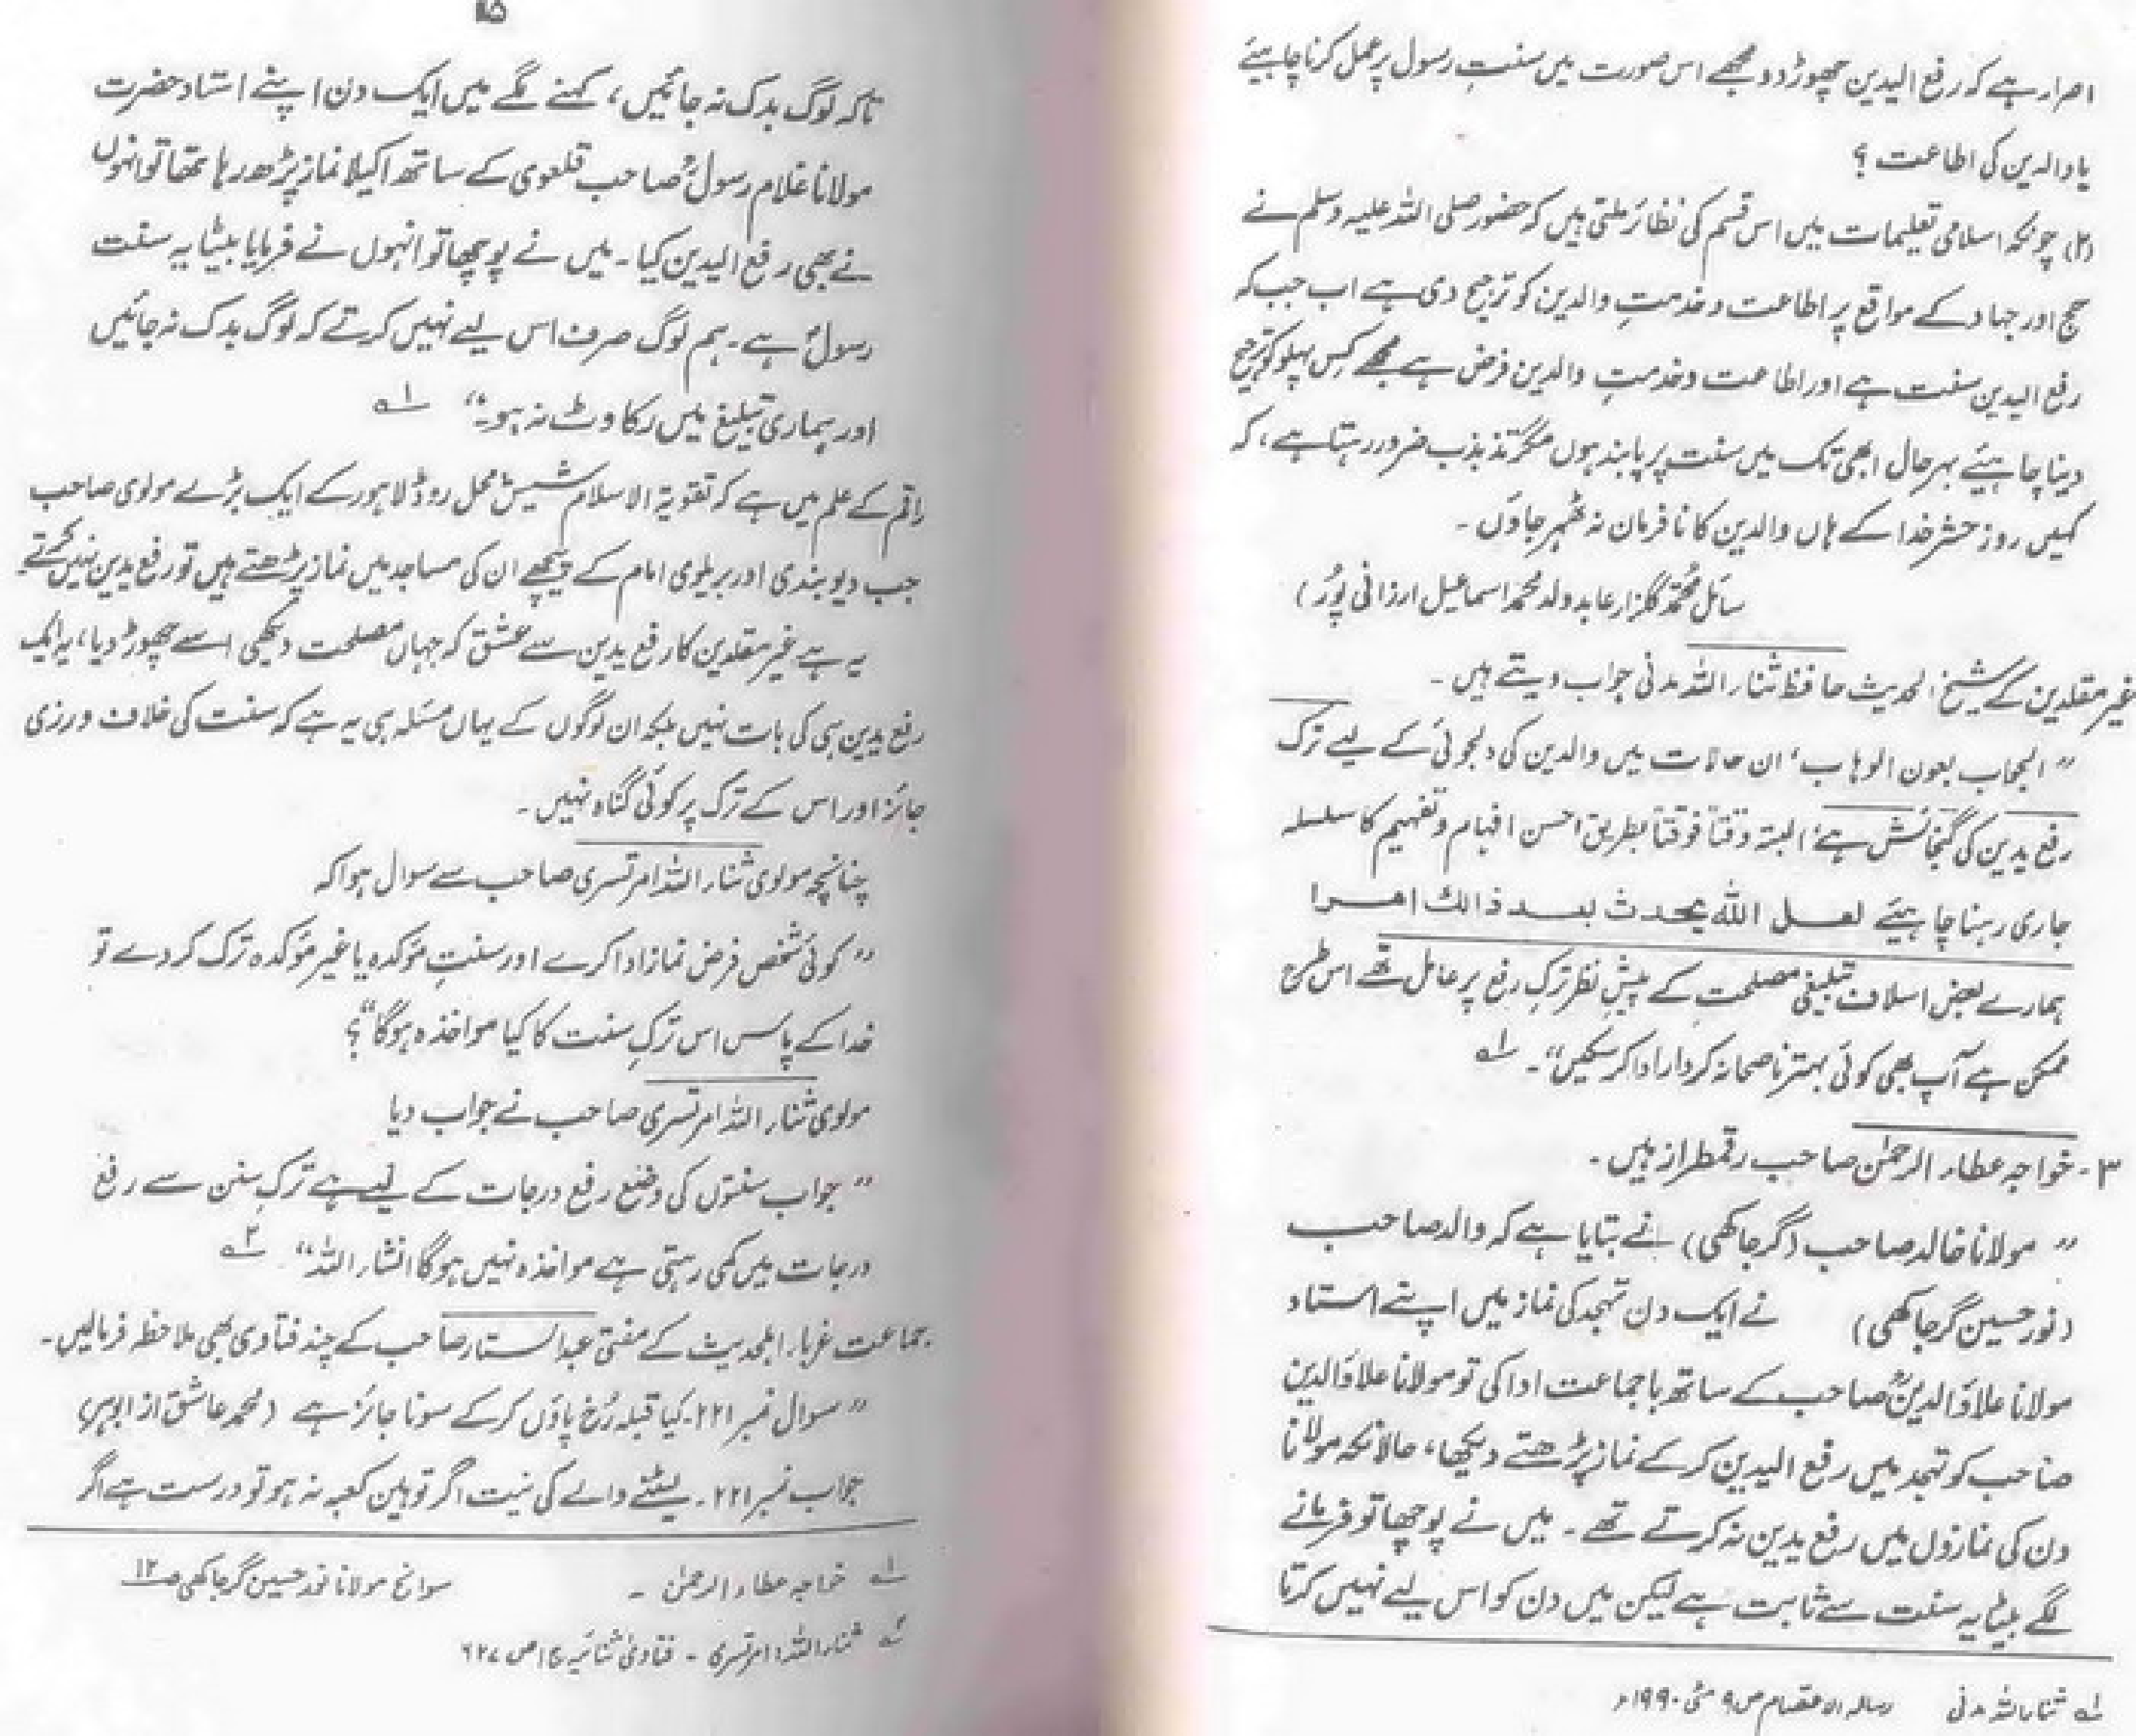 اصرار ہے کہ رفع الیدین چھوڑ دو مجھے اس صورت میں سنتِ رسول پر عمل کرنا چاہیئے
یا والدین کی اطاعت ؟
(۲) چونکہ اسلامی تعلیمات میں اس قسم کی نظائر ملتی ہیں کہ حضور صلی اللہ علیہ وسلم نے
حج اور جہاد کے مواقع پر اطاعت و خدمتِ والدین کو ترجیح دی ہے اب جب کہ
رفع الیدین سنت ہے اور اطاعت و خدمتِ والدین فرض ہے مجھے کس پہلو کو ترجیح
دینا چاہیئے بہر حال ابھی تک میں سنت پر پابند ہوں مگر تذبذب ضرور رہتا ہے، کہ
کہیں روز حشر خدا کے ہاں والدین کا نافرمان نہ ٹھہر جاؤں ۔
سائل محمد گلزار عابد ولد محمد اسماعیل ارزانی پور)
غیر مقلدین کے شیخ الحدیث حافظ ثناء اللہ مدنی جواب دیتے ہیں ۔
” الجواب بعون الوہاب، ان حالات میں والدین کی دلجوئی کے لیے ترک
رفع یدین کی گنجائش ہے، البتہ وقتاً فوقتاً بطریق احسن افہام و تفہیم کا سلسلہ
جاری رہنا چاہیئے لعل اللہ یحدث بعد ذالك امرا
ہمارے بعض اسلاف تبلیغی مصلحت کے پیشِ نظر ترکِ رفع پر عامل تھے اس طرح
ممکن ہے آپ بھی کوئی بہتر ناصحانہ کردار ادا کر سکیں“۔ ۱؎
۳- خواجہ عطاء الرحمٰن صاحب رقمطراز ہیں ۔
” مولانا خالد صاحب (گرجاکھی) نے بتایا ہے کہ والد صاحب
(نور حسین گرجاکھی) نے ایک دن تہجد کی نماز میں اپنے استاد
مولانا علاؤ الدینؒ صاحب کے ساتھ با جماعت ادا کی تو مولانا علاؤ الدین
صاحب کو تہجد میں رفع الیدین کر کے نماز پڑھتے دیکھا، حالانکہ مولانا
دن کی نمازوں میں رفع یدین نہ کرتے تھے ۔ میں نے پوچھا تو فرمانے
لگے بیٹا یہ سنت سے ثابت ہے لیکن میں دن کو اس لیے نہیں کرتا
۱؎ ثناء اللہ مدنی رسالہ الاعتصام ص ۹ مئی ۱۹۹۰ء
۱۱۵
تاکہ لوگ بدک نہ جائیں، کہنے لگے میں ایک دن اپنے استاد حضرت
مولانا غلام رسولؒ صاحب قلعوی کے ساتھ اکیلا نماز پڑھ رہا تھا تو انہوں
نے بھی رفع الیدین کیا ۔ میں نے پوچھا تو انہوں نے فرمایا بیٹا یہ سنت
رسولؐ ہے ۔ ہم لوگ صرف اس لیے نہیں کرتے کہ لوگ بدک نہ جائیں
اور ہماری تبلیغ میں رکاوٹ نہ ہو“ ۱؎
راقم کے علم میں ہے کہ تقویۃ الاسلام شیش محل روڈ لاہور کے ایک بڑے مولوی صاحب
جب دیوبندی اور بریلوی امام کے پیچھے ان کی مساجد میں نماز پڑھتے ہیں تو رفع یدین نہیں کرتے
یہ ہے غیر مقلدین کا رفع یدین سے عشق کہ جہاں مصلحت دیکھی اسے چھوڑ دیا، یہ ایک
رفع یدین ہی کی بات نہیں بلکہ ان لوگوں کے یہاں مسئلہ ہی یہ ہے کہ سنت کی خلاف ورزی
جائز اور اس کے ترک پر کوئی گناہ نہیں ۔
چنانچہ مولوی ثناء اللہ امرتسری صاحب سے سوال ہوا کہ
” کوئی شخص فرض نماز ادا کرے اور سنتِ مؤکدہ یا غیر مؤکدہ ترک کر دے تو
خدا کے پاس اس ترکِ سنت کا کیا مواخذہ ہوگا“؟
مولوی ثناء اللہ امرتسری صاحب نے جواب دیا
” جواب سنتوں کی وضع رفع درجات کے لیے ہے ترکِ سنن سے رفع
درجات میں کمی رہتی ہے مواخذہ نہیں ہوگا انشاء اللہ“ ۲؎
جماعت غرباء اہلحدیث کے مفتی عبدالستار صاحب کے چند فتاوی بھی ملاحظہ فرمالیں ۔
” سوال نمبر ۲۲۱۔ کیا قبلہ رُخ پاؤں کر کے سونا جائز ہے (محمد عاشق از
جواب نمبر ۲۲۱۔ لیٹنے والے کی نیت اگر توہین کعبہ نہ ہو تو درست ہے اگر
۱؎ خواجہ عطاء الرحمٰن ۔ سوانح مولانا نور حسین گرجاکھی ص ۱۲
۲؎ ثناء اللہ امرتسری ۔ فتاویٰ ثنائیہ ج ۱ ص ۶۲۷